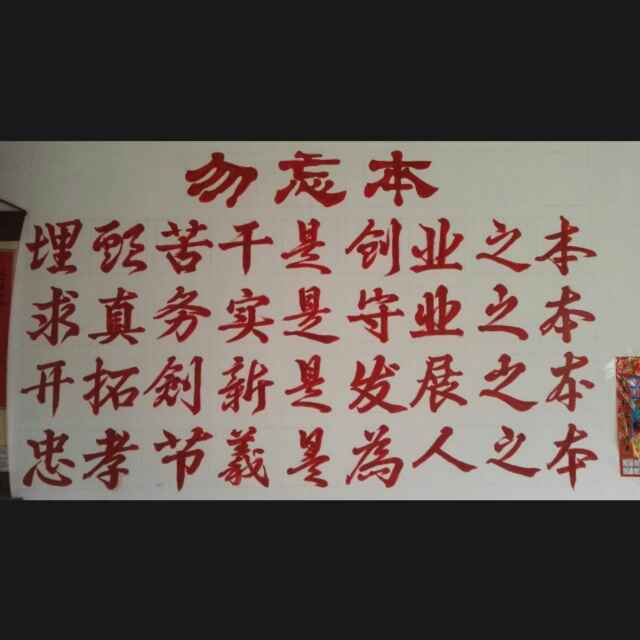 勿忘本
埋頭苦干是创业之本
求真务实是守业之本
开拓創新是发展之本
忠孝节義是為人之本